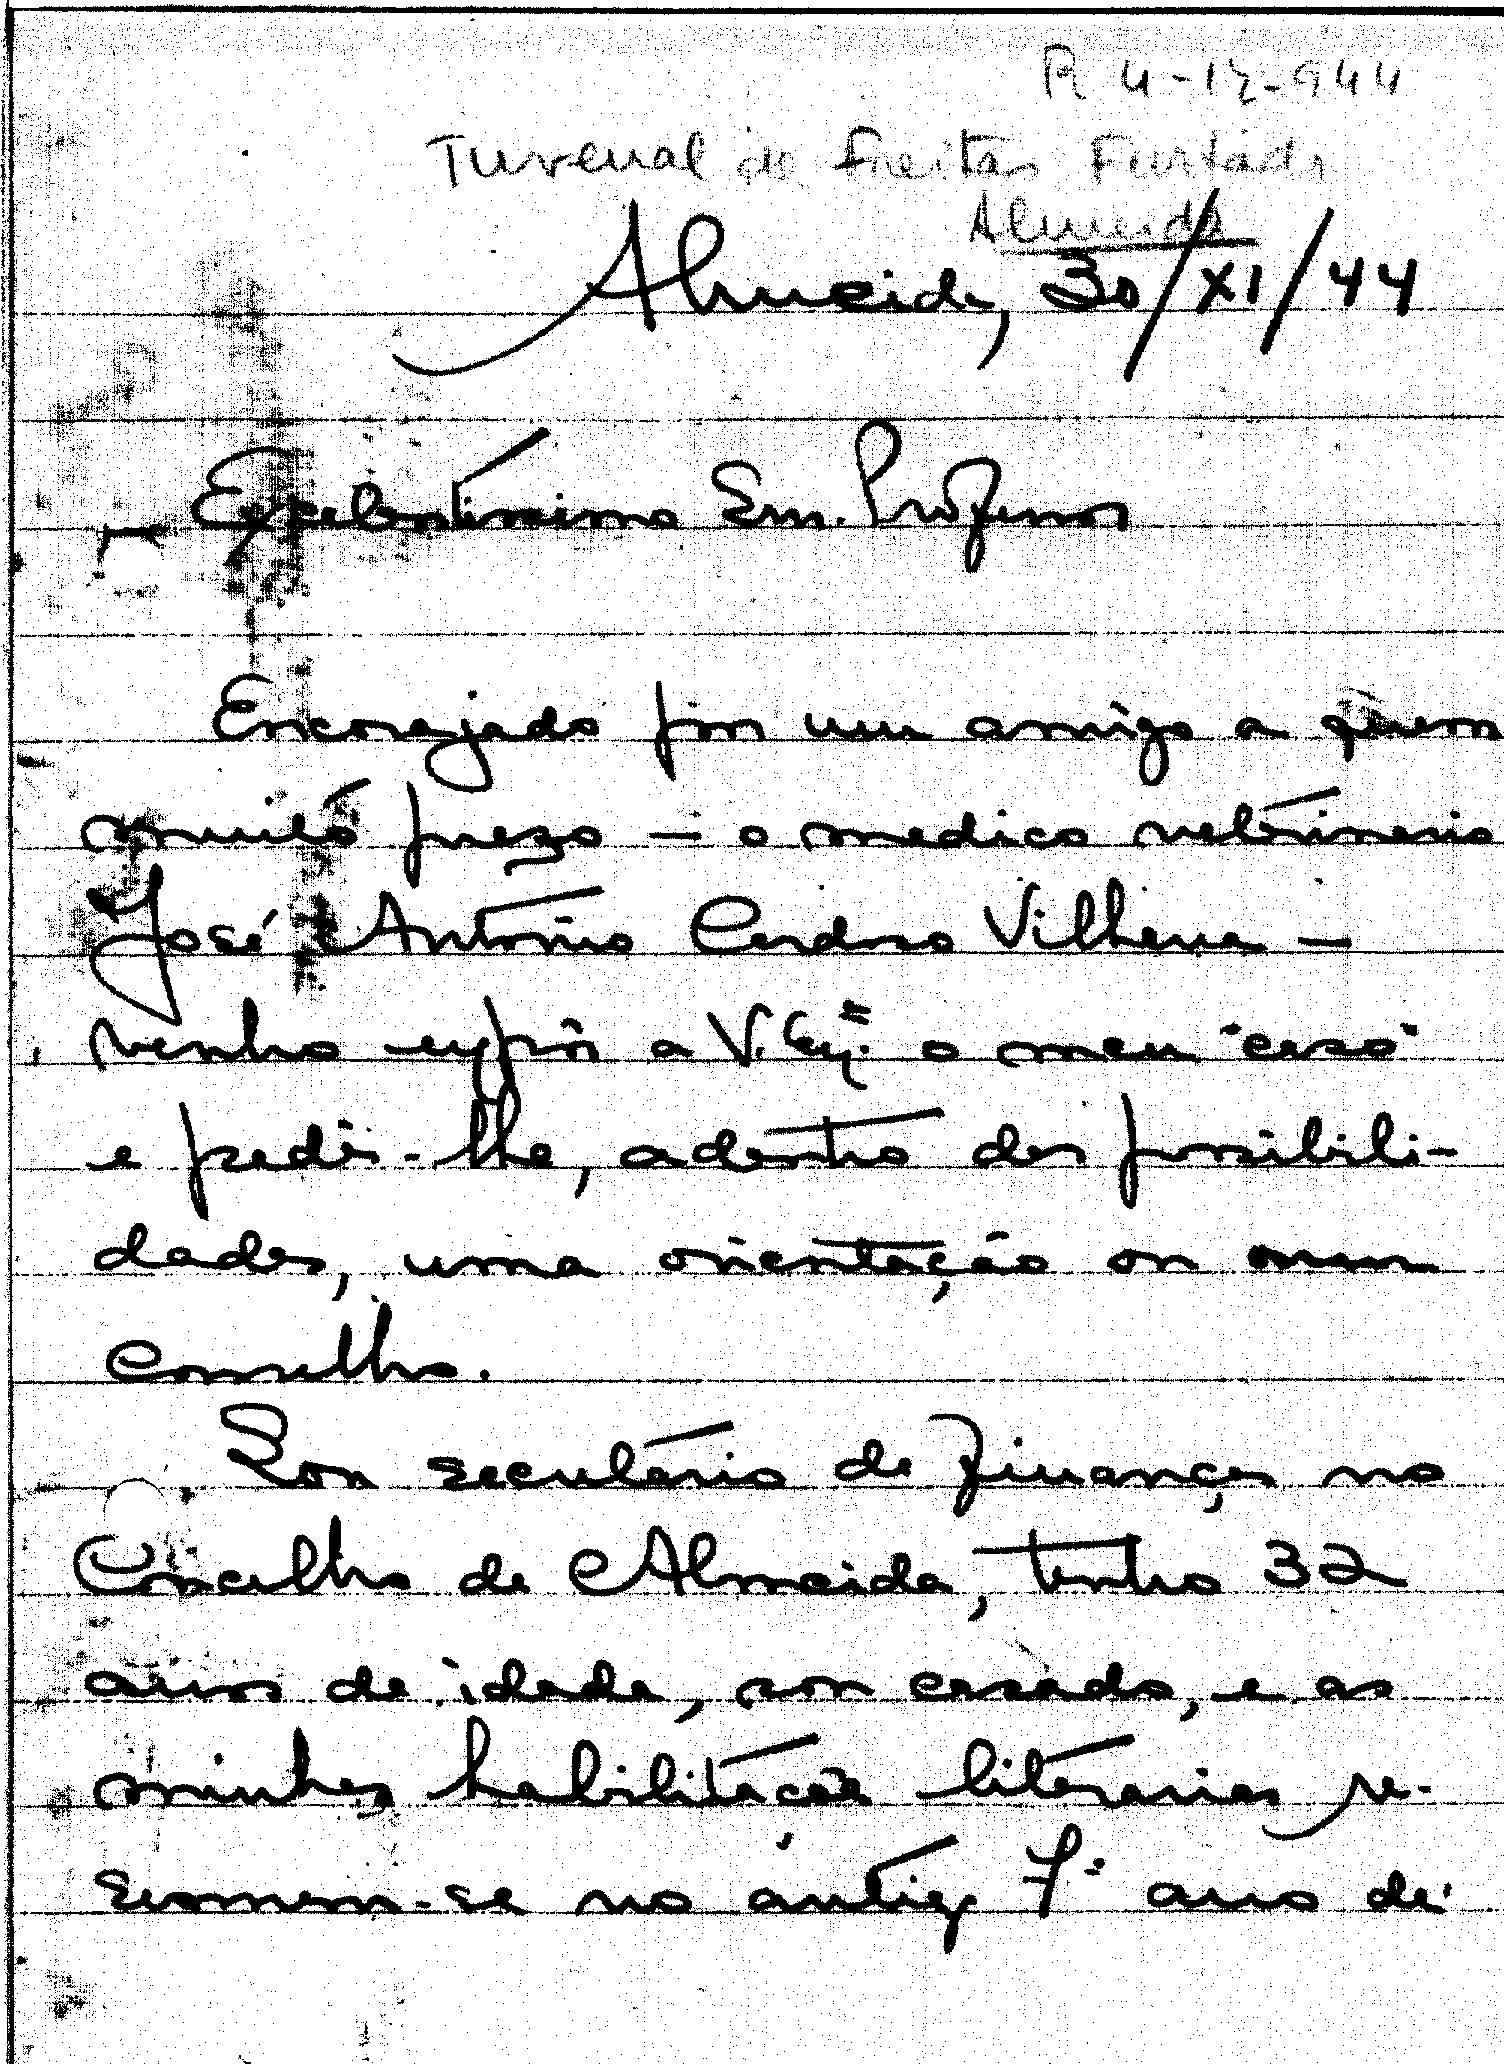 R 4-12-944
Juvenal de Freitas Furtado
Almeida
Almeida, 30/XI/44
Excelentíssimo Snr. Professor
Encorajado por um amigo a quem
muito prezo — o medico veterinario
José António Cardoso Vilhena —
venho expôr a V. Ex.ª o meu "caso"
e pedir-lhe, adentro das possibili-
dades, uma orientação ou um
conselho.
Sou secretário de finanças no
Concelho de Almeida, tenho 32
anos de idade, sou casado, e as
minhas habilitações literárias re-
sumem-se no antigo 7º ano de